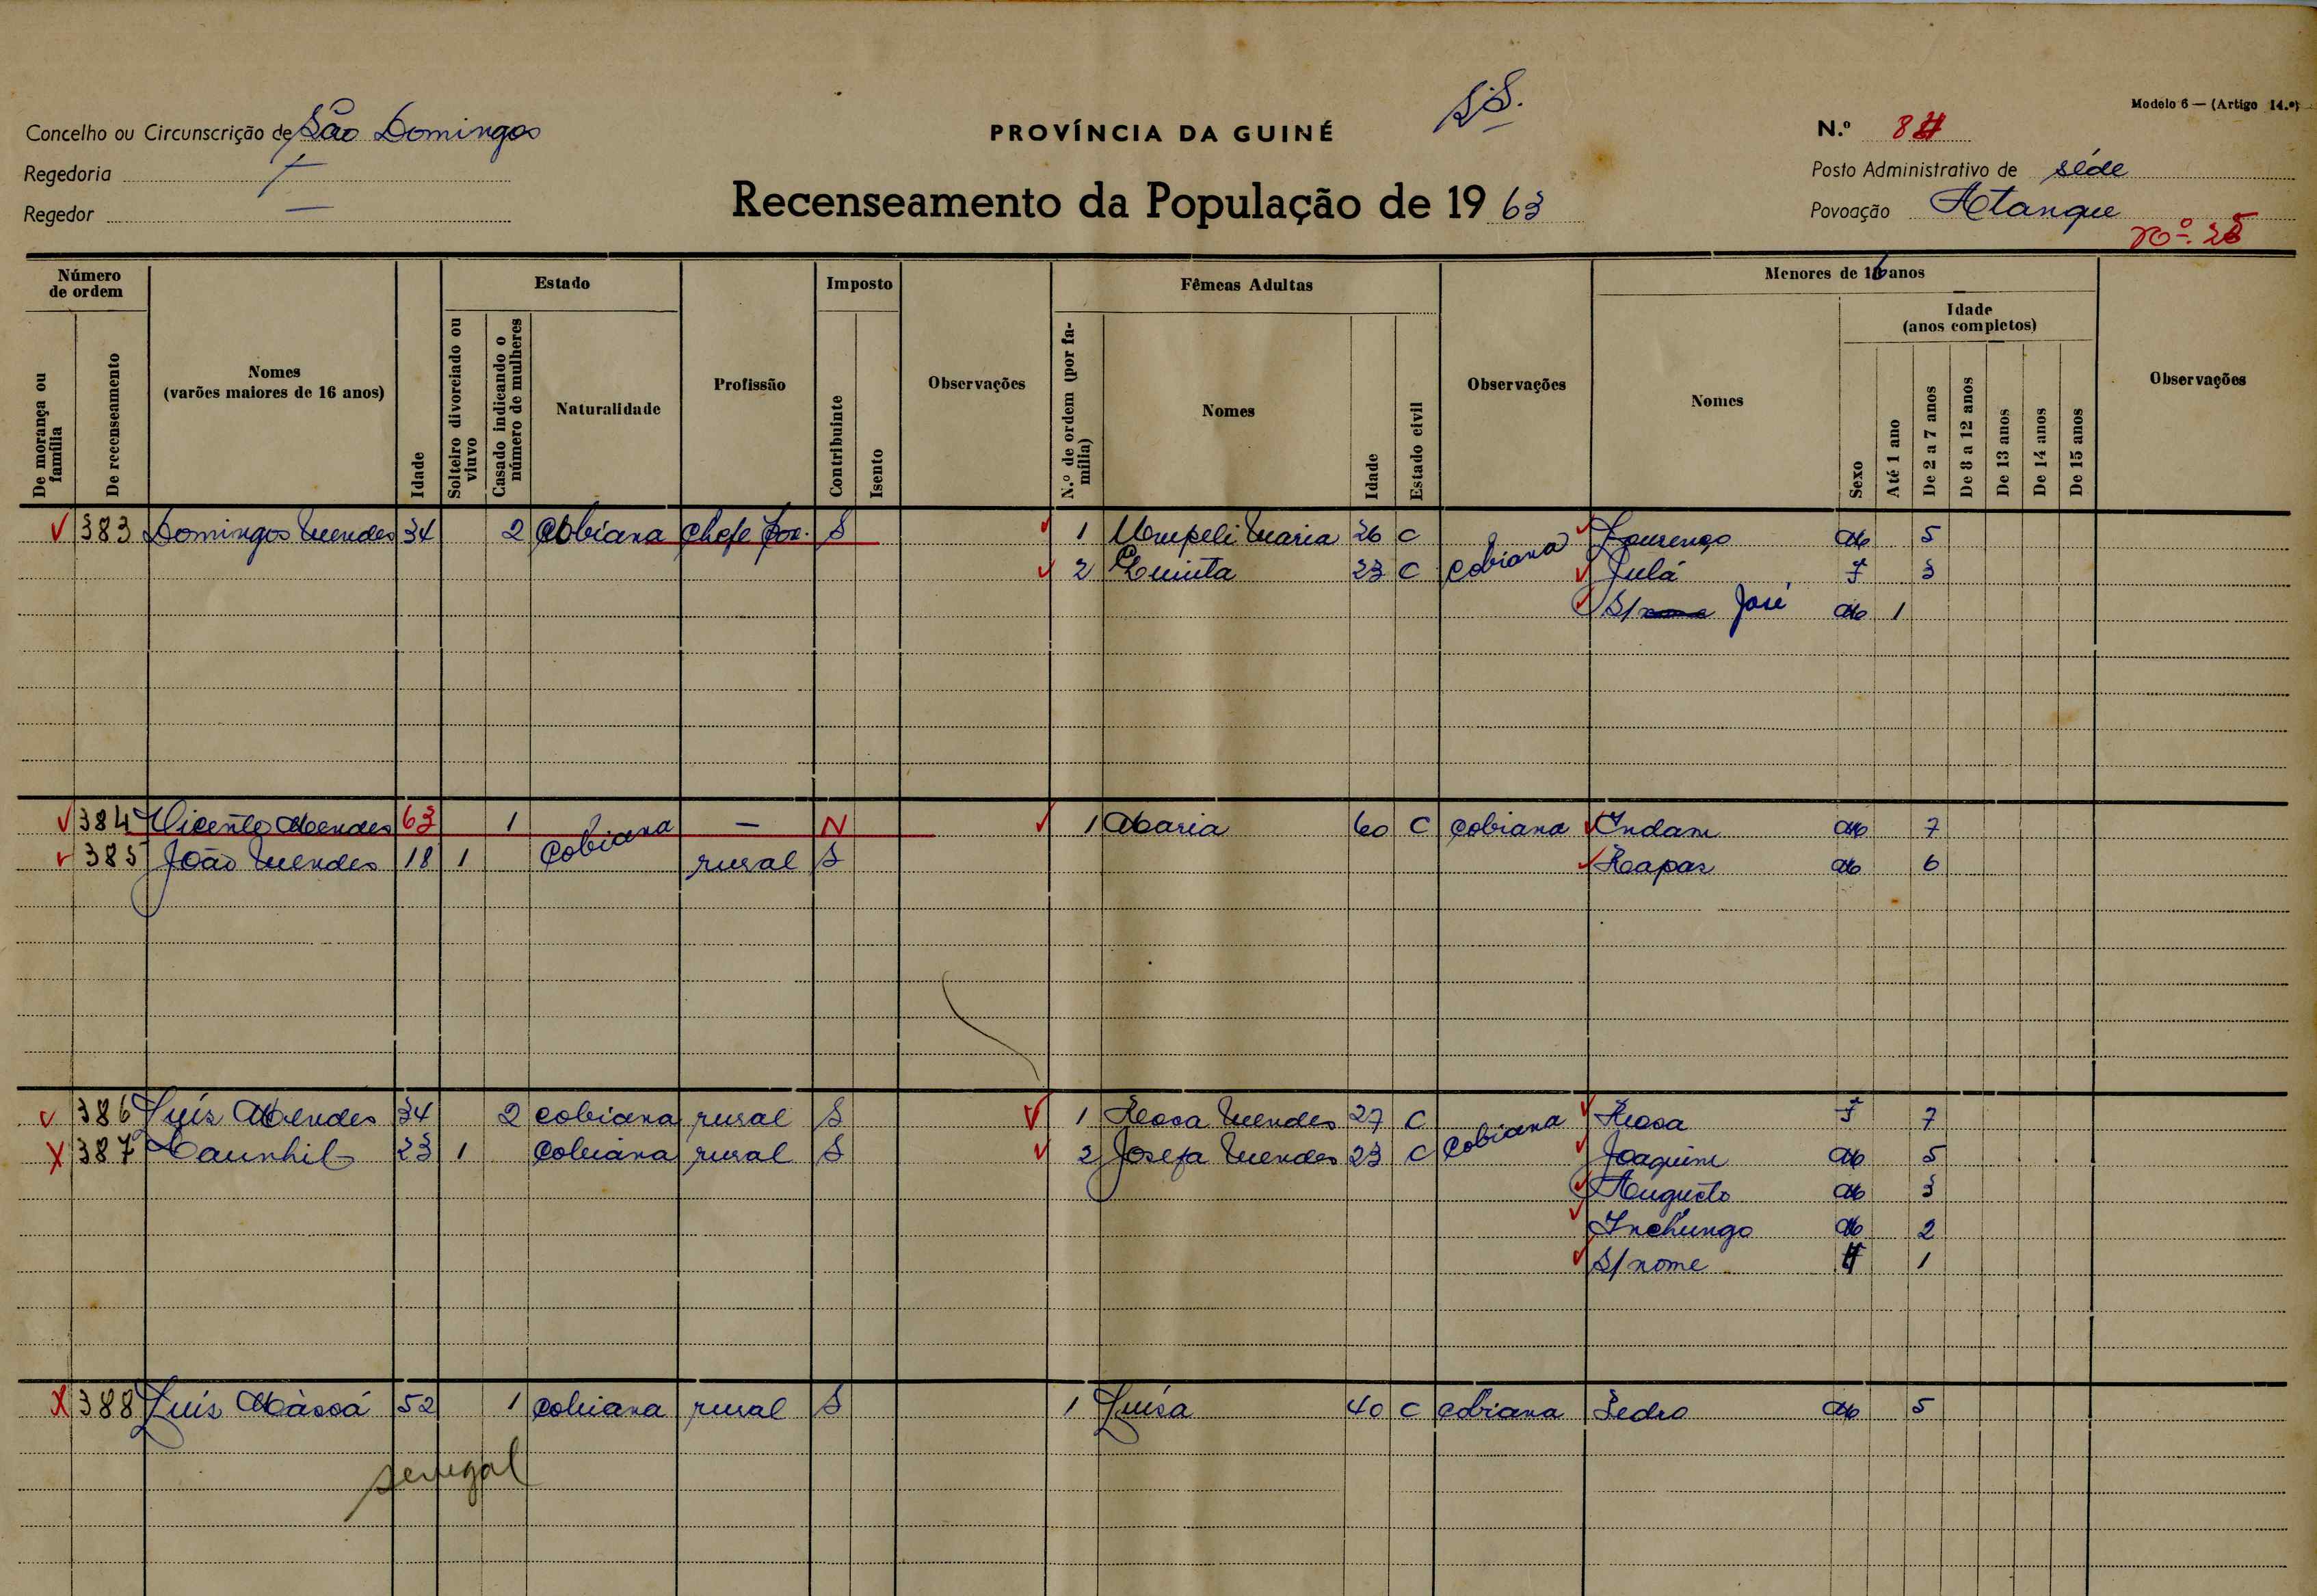 Modelo 6 — (Artigo 14.º)
Concelho ou Circunscrição de São Domingos
PROVÍNCIA DA GUINÉ
S.S.
N.º 8
Regedoria
Posto Administrativo de séde
Regedor —
Recenseamento da População de 1963
Povoação Atanque
nº.
Número de ordem
Estado
Imposto
Fêmeas Adultas
Menores de 16 anos
De morança ou família
De recenseamento
Nomes
(varões maiores de 16 anos)
Idade
Solteiro divorciado ou viuvo
Casado indicando o número de mulheres
Naturalidade
Profissão
Contribuinte
Isento
Observações
N.º de ordem (por família)
Nomes
Idade
Estado civil
Observações
Nomes
Sexo
Idade
(anos completos)
Até 1 ano
De 2 a 7 anos
De 8 a 12 anos
De 13 anos
De 14 anos
De 15 anos
Observações
383 Domingos Mendes 34 2 Cobiana Chefe Pov. S 1 Maria 26 C Cobiana Lourenço M 5
2 Quinta 23 C Julá F 3
S/nome José M 1
384 Vicente Mendes 63 1 Cobiana — N 1 Maria 60 C Cobiana Indam M 7
385 João Mendes 18 1 rural S Rapaz M 6
386 Luís Mendes 34 2 cobiana rural S 1 Rosa Mendes 27 C Cobiana Rosa F 7
387 Caunhil 23 1 Cobiana rural S 2 Josefa Mendes 23 C Joaquim M 5
Augusto M 3
Inchungo M 2
S/nome F 1
388 Luís Màssá 52 1 Cobiana rural S 1 Luísa 40 C Cobiana Pedro M 5
senegal